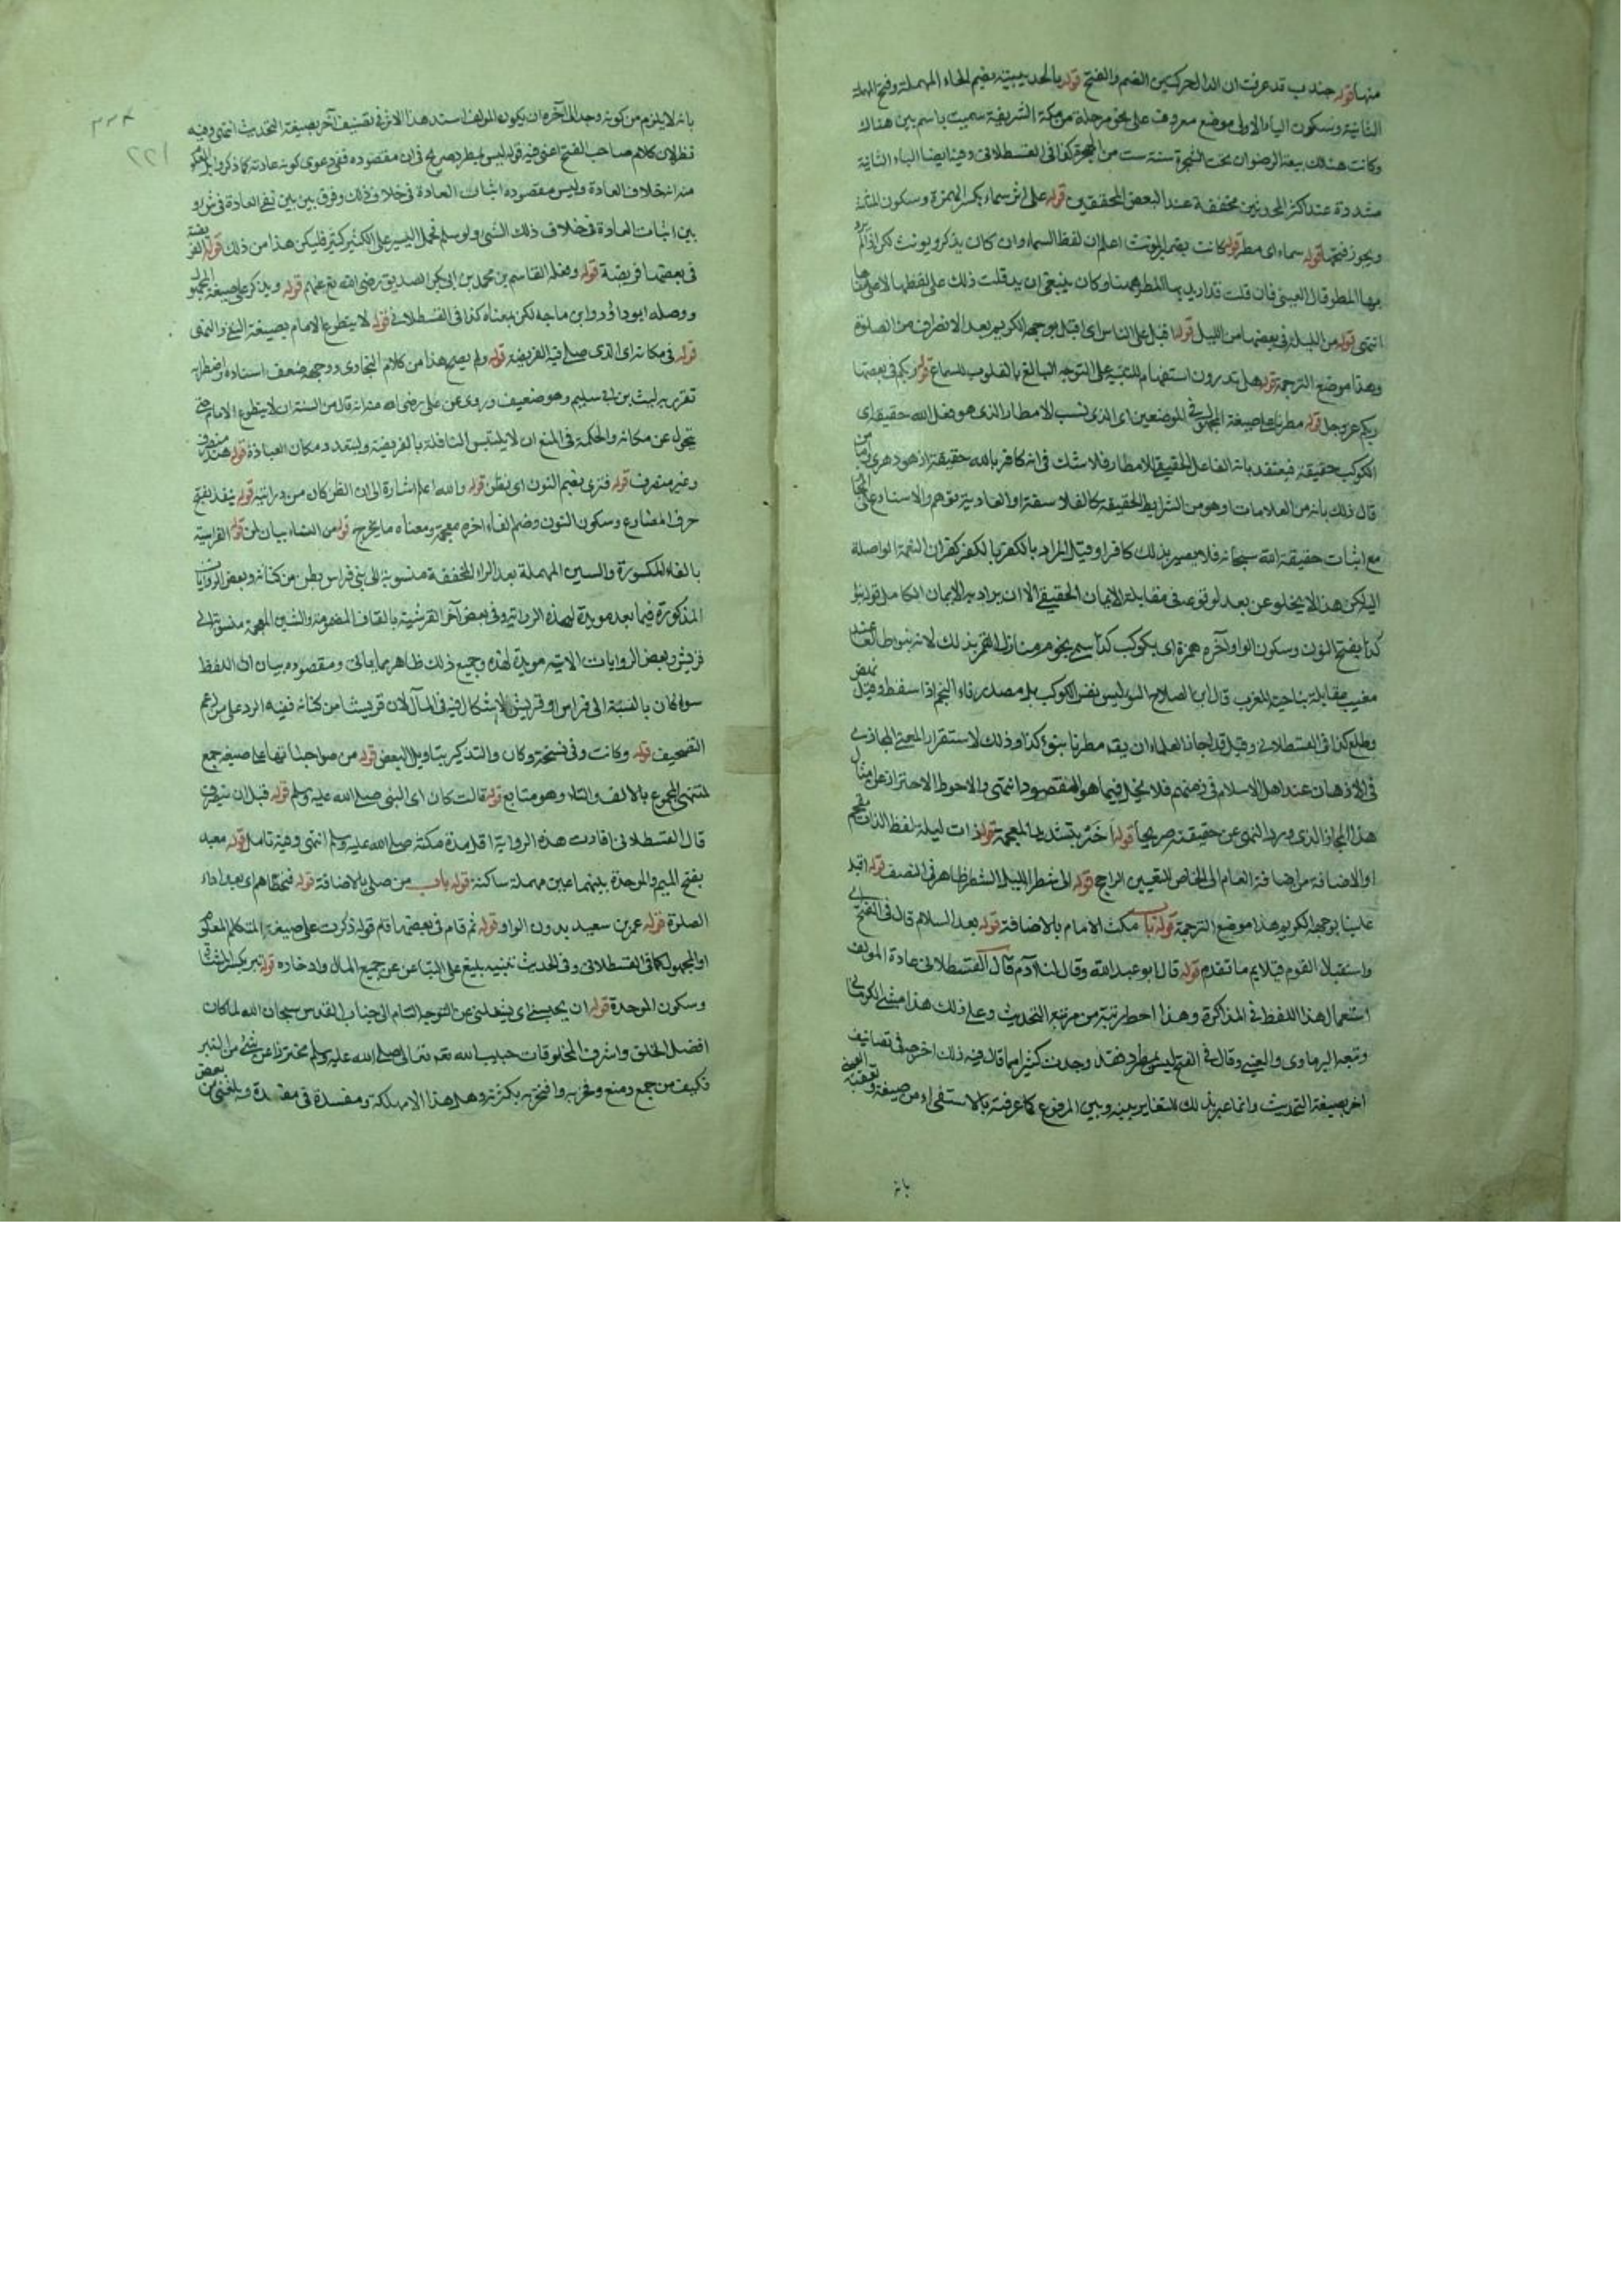 منها قوله جندب قد عرفت ان الدال بحركتين الضم والفتح قوله بالحديبية بضم الحاء المهملة وفتح المهملة
الثانية وسكون الياء الاولى موضع معروف على نحو مرحلة من مكة الشريفة سميت باسم بير هناك
وكانت هنالك بيعة الرضوان تحت الشجرة سنة ست من الهجرة كذا فى القسطلانى وفيه ايضا الياء الثانية
مشددة عند اكثر المحدثين مخففة عند البعض المحققين قوله على اثر سماء بكسر الهمزة وسكون المثلثة
ويجوز فتحها قوله سماء اى مطر قوله كانت بضمير المؤنث اعلم ان لفظ السماء وان كان يذكر ويونث لكن اذا لم يرد
بها المطر قال العينى فان قلت قد اريد بها المطر ههنا وكان ينبغى ان يذكر قلت ذلك على لفظها لا معناها
انتهى قوله من الليلة وفى بعضها من الليل قوله اقبل على الناس اى اقبل بوجهه الكريم بعد الانصراف من الصلوة
وهذا موضع الترجمة قوله هل تدرون استفهام للتنبيه على التوجه البالغ بالقلوب للسماع قوله ربكم فى بعضها
ربكم عز وجل قوله مطرنا على صيغة المجهول فى الموضعين اى الذى نسب الامطار الذى هو فضل الله حقيقة الى
الكوكب حقيقة فيعتقد بانه الفاعل الحقيقى للامطار فلا شك فى انه كافر بالله حقيقة اذ هو دهرى واما من
قال ذلك بانه من العلامات او هو من الشرايط الحقيقية كالفلاسفة او العادية بتوهم والاسناد على المجاز
مع اثبات حقيقة الله سبحانه فلا يصير بذلك كافرا وقيل المراد به بالكفر بالكفر كفران النعمة الواصلة
اليه لكن هذا لا يخلو عن بعد لوقوعه فى مقابلة الايمان الحقيقى الا ان يراد به الايمان الكامل قوله بنوء
كذا بفتح النون وسكون الواو آخره همزة اى بكوكب كذا سمى نجوم منازل القمر بذلك لانه ينوء طالعا عند
مغيب مقابله بناحية المغرب قال ابن الصلاح النوء ليس نفس الكوكب بل مصدر ناء النجم اذا سقط وقيل نهض
وطلع كذا فى القسطلانى وقيل قد اجاز العلماء ان يقه مطرنا بنوء كذا وذلك لاستقرار المعنى المجازى
فى الاذهان عند اهل الاسلام فى زمنهم فلا يخل فيما هو المقصود انتهى والاحوط الاحتراز عن مثال
هذا المجاز الذى ورد النهى عن حقيقته صريحا قوله اخر بتشديد المعجمة قوله ذات ليلة لفظ الذات مقحم
او الاضافة من اضافة العام الى الخاص للتعيين الراجح قوله الى شطر الليل الشطر ظاهر فى النصف قوله اقبل
علينا بوجهه الكريم هذا موضع الترجمة قوله باب مكث الامام بالاضافة قوله بعد السلام قال فى الفتح اى
واستقبال القوم فيلايم ما تقدم قوله قال ابو عبد الله وقال لنا آدم قال القسطلانى عادة المولف
استعمال هذا اللفظ فى المذاكرة وهذا احط رتبة من مرتبة التحديث وعلى ذلك هذا مشى الكرمانى
وتبعه البرماوى والعينى وقال فى الفتح ليس بمطرد فقد وجدت كثيرا مما قال فيه ذلك اخرجه فى تصانيف
اخر بصيغة التحديث وانما عبر بذلك للتغاير بينه وبين المرفوع كما عرفته بالاستقراء من صيغه وتعقبه العينى
بانه
٢٢١
بانه لا يلزم من كونه وجد الى آخره ان يكون المولف اسند هذا الاثر فى تصنيف آخر بصيغة التحديث انتهى وفيه
نظر لان كلام صاحب الفتح اعنى فيه قوله ليس بمطرد صريح فى ان مقصوده نفى دعوى كونه عادته كما ذكروا بل
منه انه خلاف العادة وليس مقصوده اثبات العادة فى خلاف ذلك وفرق بين بين نفى العادة فى شئ و
بين اثبات العادة فى خلاف ذلك الشئ ولو سلم فحمل اليسير على الكثير كثير فليكن هذا من ذلك قوله الفريضة
فى بعضها فريضة قوله وفعله القاسم بن محمد بن ابى بكر الصديق رضى الله تع عنهم قوله ويذكر على صيغة المجهول
ووصله ابو داؤد وابن ماجه لكن بمعناه كذا فى القسطلانى قوله لا يتطوع الامام بصيغة النفى والنهى
قوله فى مكانه اى الذى صلى فيه الفريضة قوله ولم يصح هذا من كلام البخارى ووجهه ضعف اسناده واضطرابه
تفرد به ليث بن ابى سليم وهو ضعيف وروى عن على رضى الله عنه انه قال من السنة ان لا يتطوع الامام حتى
يتحول عن مكانه والحكمة فى المنع ان لا يلتبس النافلة بالفريضة ويتعدد مكان العبادة قوله
وغير منصرف قوله فنرى بضم النون اى نظن قوله والله اعلم اشارة الى ان الظن كان من درايته قوله ينفذ بفتح
حرف المضارع وسكون النون وضم الفاء آخره معجمة ومعناه ما يخرج قوله من النساء بيان لمن قوله الفراسية
بالفاء المكسورة والسين المهملة بعد الراء المخففة منسوبة الى بنى فراس بطن من كنانة وبعض الروايات
المذكورة فيما بعد مويدة لهذه الرواية وفى بعض آخر القرشية بالقاف المضمومة والشين المعجمة منسوبة الى
قريش وبعض الروايات الاتية مويدة لهذه وجميع ذلك ظاهر مما ياتى ومقصوده بيان ان اللفظ
سواء كان بالنسبة الى فراس او قريش لا اشكال فيه فى المآل لان قريشا من كنانة ففيه الرد على من زعم
التصحيف قوله وكانت وفى نسخة وكان والتذكير بتاويل البعض قوله من صواحباتها على صيغة جمع
لمنتهى المجموع بالالف والتاء وهو متابع قوله قالت كان اى النبى صلى الله عليه وسلم قوله قبل ان ينصرف
قال القسطلانى افادت هذه الرواية اقل مدة مكثه صلى الله عليه وسلم انتهى وفيه تامل قوله معبد
بفتح الميم والموحدة بينهما عين مهملة ساكنة قوله باب من صلى بالاضافة قوله فتخطاهم اى بعد اداء
الصلوة قوله عمر بن سعيد بدون الواو قوله ثم قام فى بعضها قام قوله ذكرت على صيغة المتكلم المعلوم
او المجهول كما فى القسطلانى وفى الحديث تنبيه بليغ على التباعد عن جميع المال وادخاره قوله تبر بكسر المثناة
وسكون الموحدة قوله ان يحبسنى اى يشغلنى عن التوجه التام الى جناب القدس سبحان الله لما كان
افضل الخلق واشرف المخلوقات حبيب الله تعالى صلى الله عليه وسلم محترزا عن شئ من التبر
فكيف من جمع ومنع وافتخر به بكثرته وهل هذا الا مهلكة ومفسدة وبلغنى من بعض